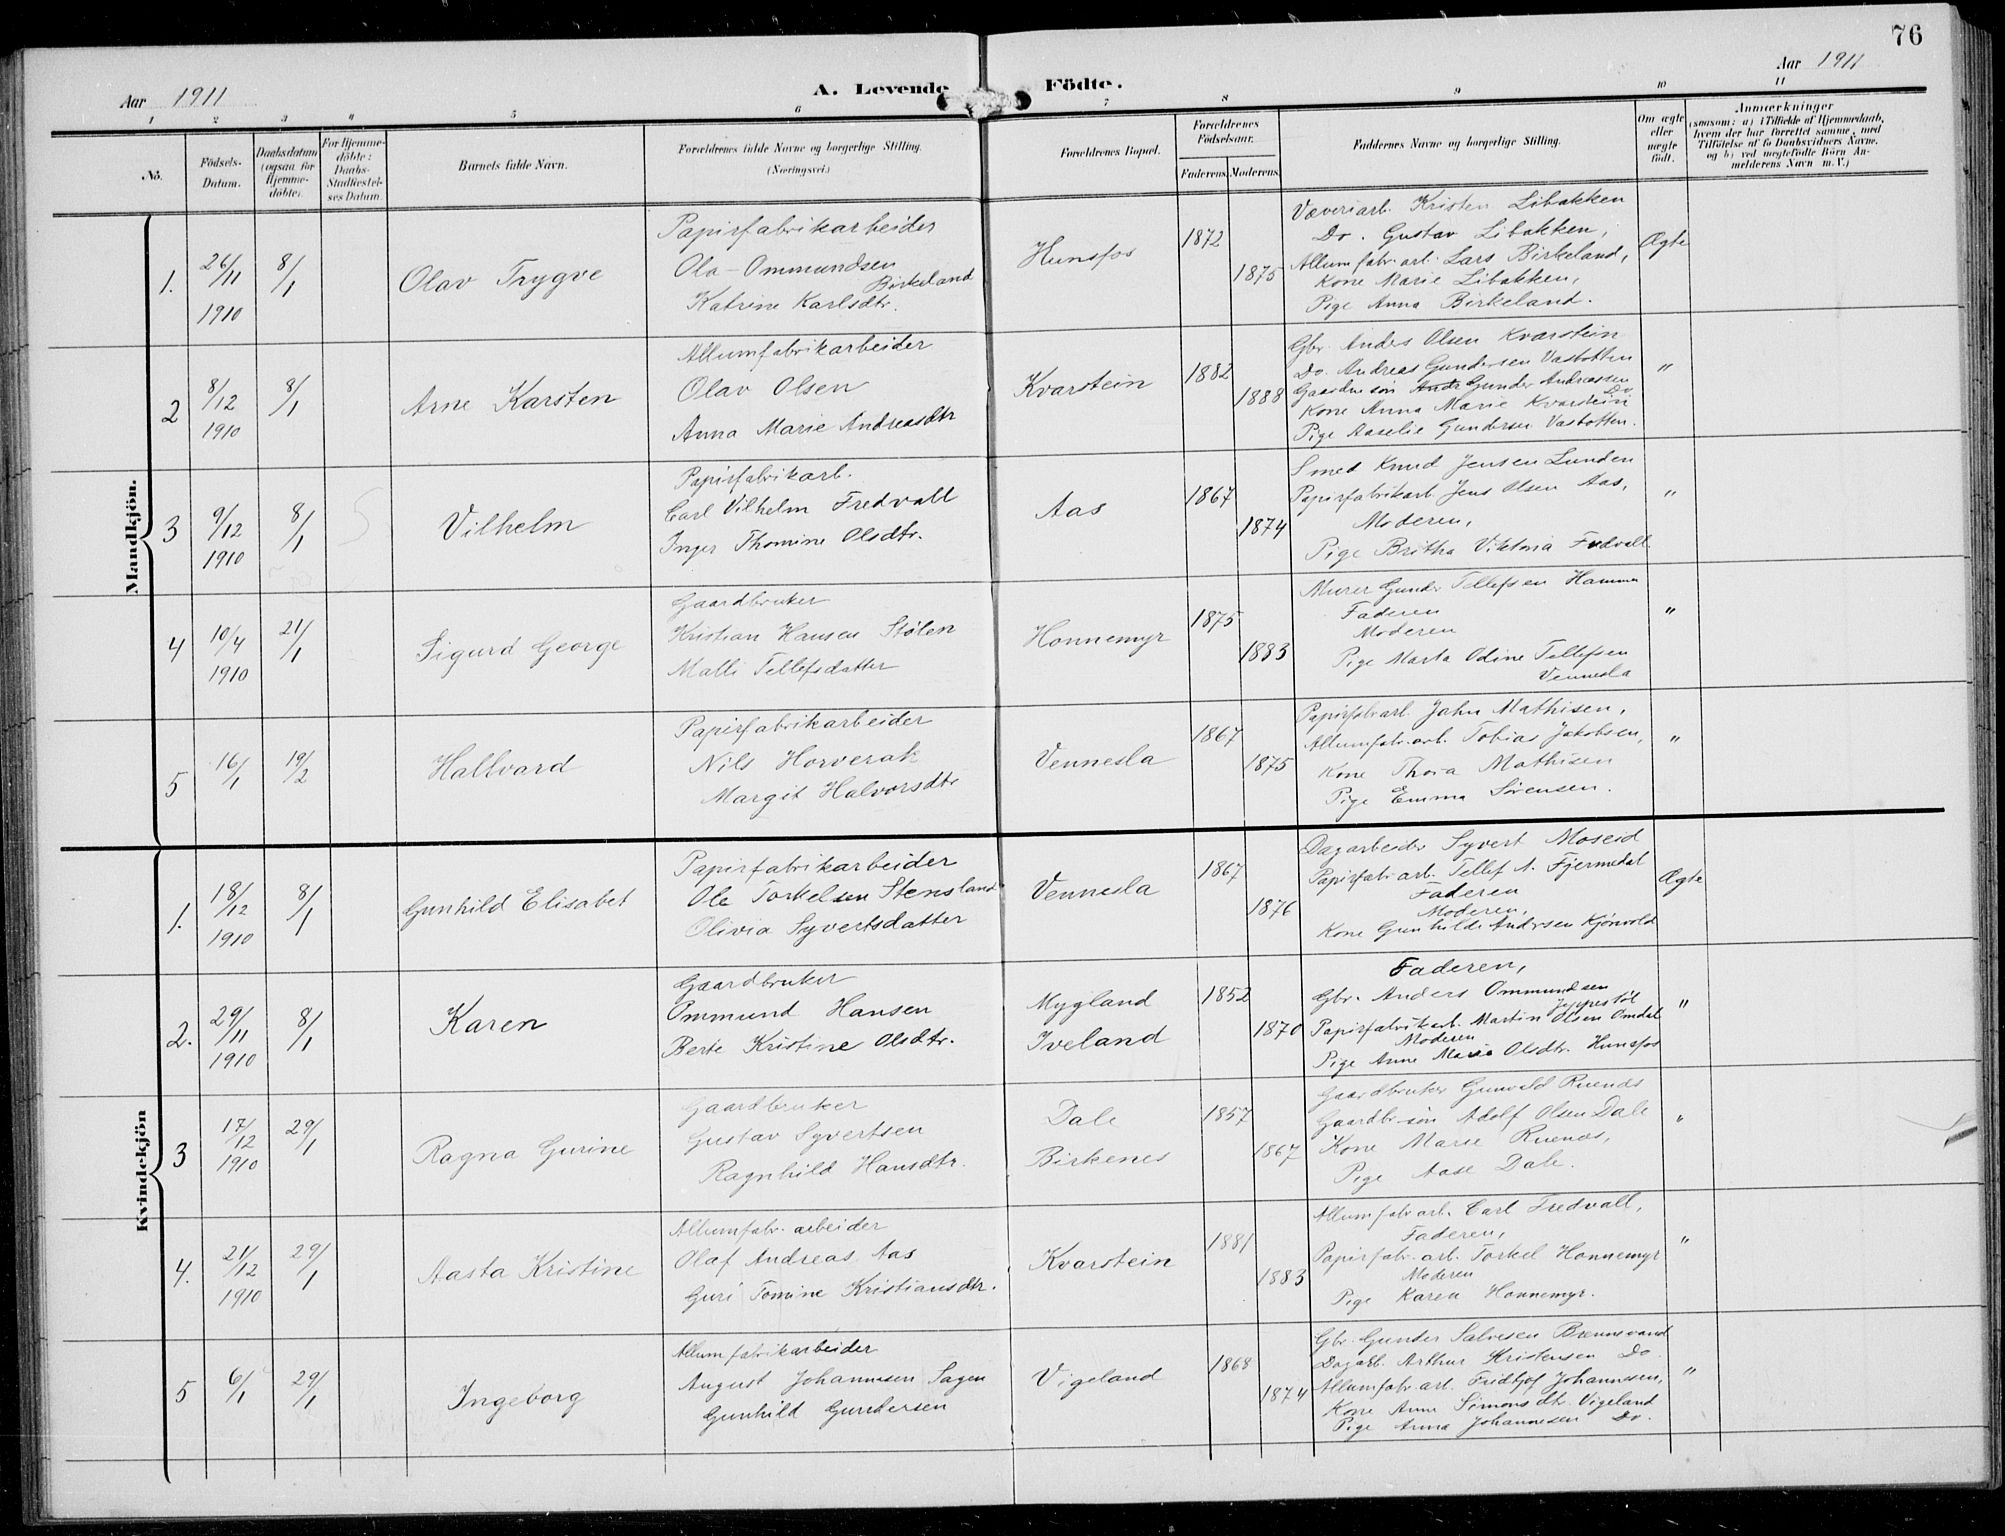 76
Aar 1911
A. Levende Födte.
Aar 1911
1 2 3 4 5 6 7 8 9 10 11
No.
Födsels-Datum.
Daabsdatum (ogsaa for Hjemmedöbte).
For Hjemmedöbte: Daabs-Stadfæstelses Datum
Barnets fulde Navn.
Forældrenes fulde Navne og borgerlige Stilling. (Næringsvei.)
Forældrenes Bopæl.
Forældrenes Födselsaar.
Faderens. Moderens.
Faddernes Navne og borgerlige Stilling.
Om ægte eller uægte født.
Anmærkninger
(saasom: a) i Tilfælde af Hjemmedaab, hvem der har forrettet samme, med Tilföielse af to Daabsvidners Navne, og b) ved uægtefödte Börn Anmelderens Navn m. V.)
Mandkjön.
1. 26/11 1910 8/1 Olav Trygve
Papirfabrikarbeider
Ola Ommundsen Birkeland
Katrine Karlsdtr.
Hunsfos 1872 1875
Væveriarb. Kristen Libakken
Do. Gustav Libakken,
Allumfabr. arb. Lars Birkeland,
Kone Marie Libakken,
Pige Anna Birkeland.
Ægte
2 8/12 1910 8/1 Arne Karsten
Allumfabrikarbeider
Olav Olsen
Anna Marie Andreasdtr
Kvarstein 1882 1888
Gbr. Andes Olsen Kvarstein
Do. Andreas Gundersen Vasbotten
Gaardm. søn Gunder Andreassen Do
Kone Anna Marie Kvarstein
Pige Aaselie Gundersen Vasbotten.
"
3 9/12 1910 8/1 Vilhelm
Papirfabrikarb.
Carl Vilhelm Fredvall
Inger Thomine Olsdtr.
Aas 1867 1874
Smed Knud Jensen Lunden
Papirfabrikarb. Jens Olsen Aas,
Moderen,
Pige Britha Viktoria Fredvall.
"
4 10/4 1910 21/1 Sigurd George
Gaardbruker
Kristian Hansen Stølen
Malli Tellefsdatter
Honnemyr 1875 1883
Murer Gunder Tellefsen Hamma
Faderen
Moderen
Pige Marta Odine Tellefsen
Vennesla
"
5 16/1 19/2 Hallvard
Papirfabrikarbeider
Nils Horverak
Margit Halvorsdtr
Vennesla 1867 1875
Papirfabr arb. John Mathisen,
Allumfabr. arb. Tobias Jakobsen,
Kone Thora Mathisen
Pige Emma Sørensen.
"
Kvindekjön
1. 18/12 1910 8/1 Gunhild Elisabet
Papirfabrikarbeider
Ole Torkelsen Stensland
Olivia Syvertsdatter
Vennesla 1867 1876
Dagarbeider Syvert Moseid
Papirfabr arb. Tellef A. Fjermedal
Faderen
Moderen,
Kone Gunhilde Andersen Kjönvold
Ægte
2. 29/11 1910 8/1 Karen
Gaardbruker
Ommund Hansen
Berte Kristine Olsdtr.
Mygland
Iveland
1852 1870
Faderen,
Gbr. Anders Ommundsen Jeppestöl
Papirfabrikarb. Martin Olsen Omdal
Moderen
Pige Anne Marie Olsdtr. Hunsfos
"
3 17/12 1910 29/1 Ragna Gurine
Gaardbruker
Gustav Syvertsen
Ragnhild Hansdtr.
Dale
Birkenes
1857 1867
Gaardbruker Gunvald Ruenæs
Gaardbr. søn Adolf Olsen Dale
Kone Marie Ruenæs,
Pige Aase Dale.
"
4. 21/12 1910 29/1 Aasta Kristine
Allumfabr. arbeider
Olaf Andreas Aas
Guri Tomine Kristiansdtr.
Kvarstein 1881 1883
Allumfabr arb. Carl Fredvall,
Faderen,
Papirfabr. arb. Torkel Honnemyr
Moderen
Pige Karen Honnemyr.
"
5 6/1 29/1 Ingeborg
Allumfabrikarbeider
August Johannesen Sagen
Gunhild Gundersen
Vigeland 1868 1874
Gbr. Gunder Salvesen Brennevand
Dagarb. Arthur Kristensen Do
Allumfabr arb. Fridtjof Johannesen,
Kone Anne Simonsdtr. Vigeland
Pige Anna Johannesen Do.
"